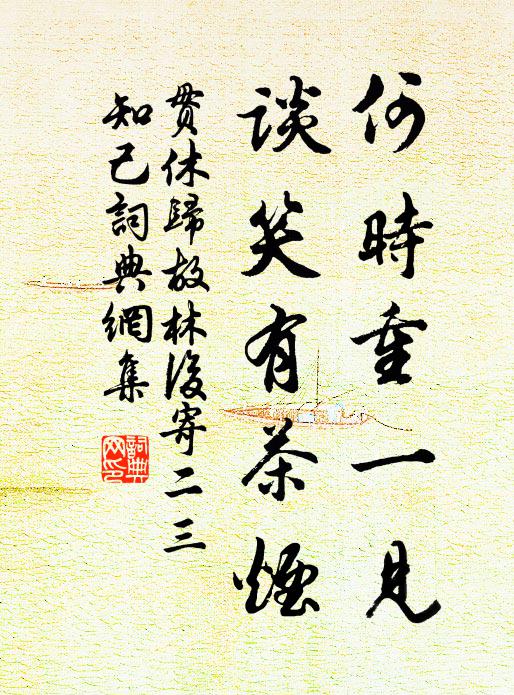 何時重一見
談笑有茶煙
貫休歸故林後寄二三
知己詞典網集
詞典
网印